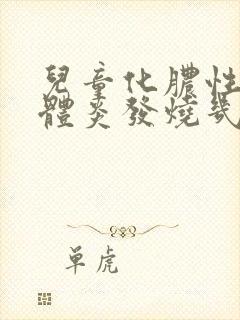 兒童化膿性
體炎發燒幾
单虎